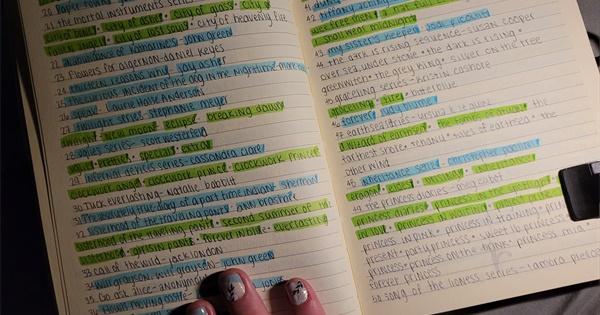 20. Paper towns
21. the mortal instruments series
city of bones · city of ashes · city of glass · city of
city of heavenly fire
22. an abundance of katherines - john green
23. Flowers for algernon - daniel keyes
24. thirteen reasons why - jay asher
25. the curious incident of the dog in the nighttime - mark
26. speak - Laurie Halse Anderson
27. twilight series - stephanie meyer
twilight · new moon · eclipse · breaking dawn
28. uglies series - scott westerfeld
uglies · pretties · specials · extras
29. infernal devices series - cassandra clare
clockwork angel · clockwork prince · clockwork princess
30. Tuck everlasting - natalie babbitt
31. the absolutely true diary of a part time indian - sherman
32. sisterhood of the traveling pants - ann brashares
sisterhood of the traveling pants · second summer of the
sisterhood · girls in pants · forever in blue · everlasting
33. call of the wild - jack london
34. will grayson, will grayson - john green
35. Go ask alice - anonymous
36.
42. tiffany aching
wee free men
I shall wear midnight
43. my sister's keeper - jodi picoult
44. the dark is rising sequence - susan cooper
over sea, under stone · the dark is rising ·
greenwitch · the grey king · silver on the tree
45. graceling series - kristin cashore
graceling · fire · bitterblue
46. forever - judy blume
47. earthsea series - ursula k le guin
a wizard of earthsea · the tombs of atuan · the
farthest shore · tehanu · tales of earthsea · the
other wind
48. inheritance series - christopher paolini
eragon · eldest · brisingr · inheritance
49. the princess diaries - meg cabot
princess diaries · princess in the spotlight · princess
in love · princess in waiting
princess in pink · princess in training ·
present · party princess ·
princess · princess on the brink · princess mia ·
forever princess
50. song of the lioness series - tamora pierce